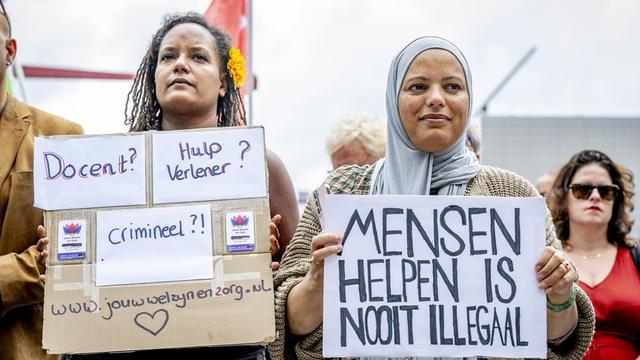 Docent?
Hulp
Verlener?
crimineel?!
www.jouwwelzijnenzorg.nl
MENSEN
HELPEN IS
NOOIT ILLEGAAL